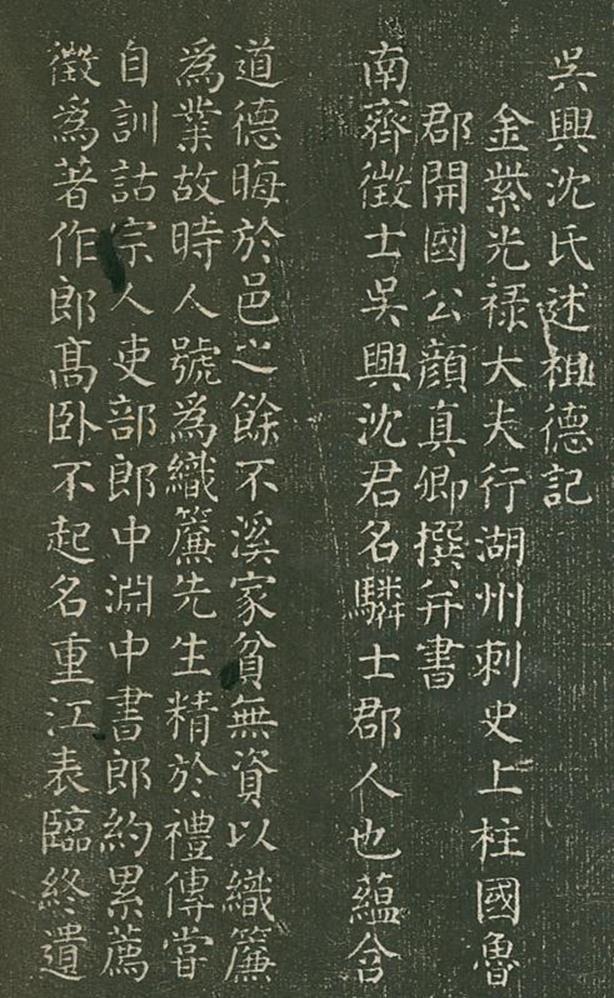 吳興沈氏述祖德記
金紫光祿大夫行湖州刺史上柱國魯
郡開國公顏真卿撰并書
南齊徵士吳興沈君名驎士郡人也蘊含
道德晦於邑之餘不溪家貧無資以織簾
為業故時人號為織簾先生精於禮傳嘗
自訓詁宗人吏部郎中淵中書郎約累薦
徵為著作郎高臥不起名重江表臨終遺